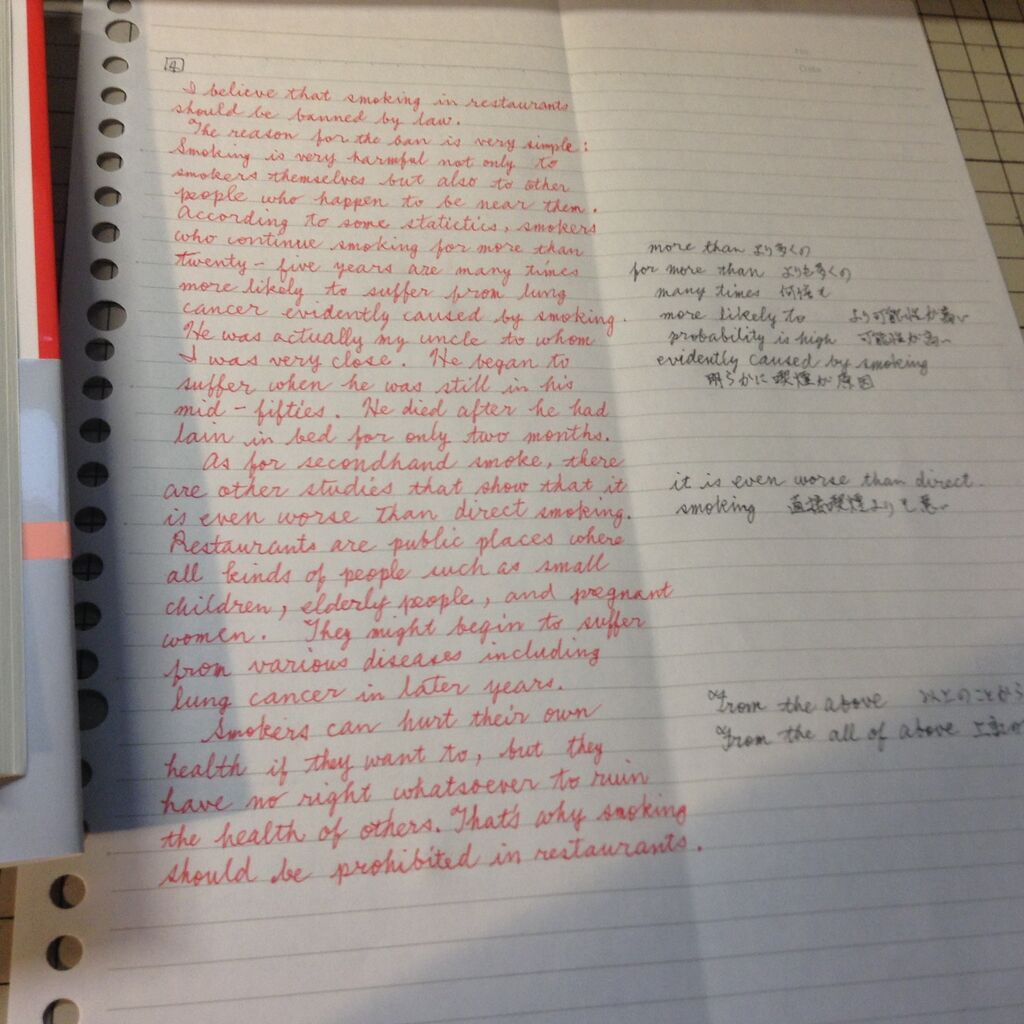 4
I believe that smoking in restaurants
should be banned by law.
The reason for the ban is very simple:
Smoking is very harmful not only to
smokers themselves but also to other
people who happen to be near them.
According to some statictics, smokers
who continue smoking for more than
twenty-five years are many times
more likely to suffer from lung
cancer evidently caused by smoking.
He was actually my uncle to whom
I was very close. He began to
suffer when he was still in his
mid-fifties. He died after he had
lain in bed for only two months.
As for secondhand smoke, there
are other studies that show that it
is even worse than direct smoking.
Restaurants are public places where
all kinds of people such as small
children, elderly people, and pregnant
women. They might begin to suffer
from various diseases including
lung cancer in later years.
Smokers can hurt their own
health if they want to, but they
have no right whatsoever to ruin
the health of others. That's why smoking
should be prohibited in restaurants.
more than より多くの
for more than よりも多くの
many times 何倍も
more likely to より可能性が高い
probability is high 可能性が高い
evidently caused by smoking
明らかに喫煙が原因
it is even worse than direct
smoking 直接喫煙よりも悪い
From the above 以上のことから
From the all of above 上記の
No.
Date